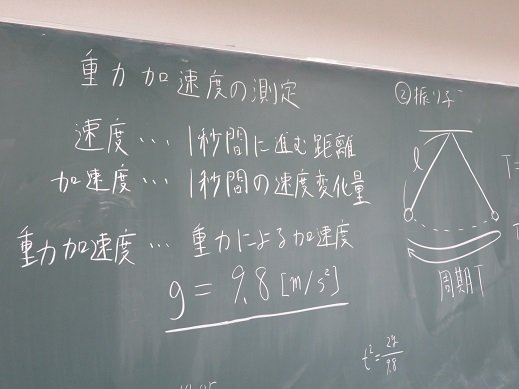 重力加速度の測定
速度… 1秒間に進む距離
加速度… 1秒間の速度変化量
重力加速度… 重力による加速度
g = 9.8 [m/s²]
②振り子
l
T=
周期T
t²=2y/9.8